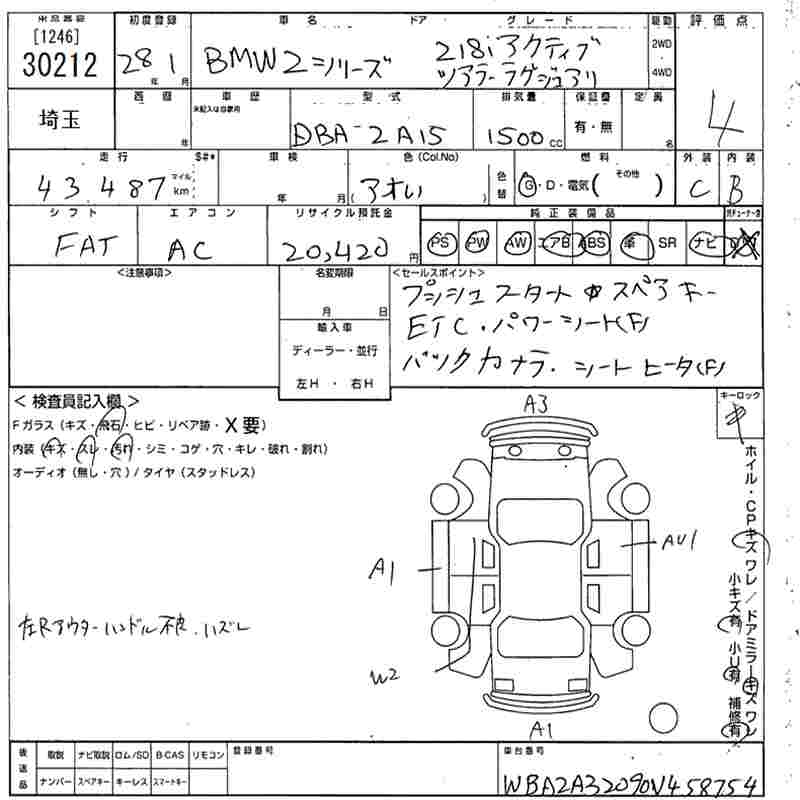 出品番号 初度登録 車名 ドア グレード 駆動 評価点
[1246]
30212
28年1月 BMW 2シリーズ 218i アクティブ
ツアラーラグジュアリ
2WD
4WD
4
埼玉
西暦 車歴 型式 排気量 保証書 定員
未記入は自家用
年 DBA-2A15 1500cc 有・無 名
走行 $#* 車検 色(Col.No) 燃料 外装 内装
43,487 マイル km 年 月 (アオい) 色替 G・D・電気( その他 ) C B
シフト エアコン リサイクル預託金 純正装備品
FAT AC 20,420円 PS PW AW エアB ABS 革 SR ナビ
<注意事項> 名変期限 <セールスポイント>
月 日
プッシュスタート スペアキー
ETC・パワーシート(F)
バックカメラ. シートヒータ(F)
輸入車
ディーラー・並行
左H・右H
<検査員記入欄>
Fガラス(キズ・飛石・ヒビ・リペア跡・X要)
内装(キズ・スレ・汚れ・シミ・コゲ・穴・キレ・破れ・割れ)
オーディオ(無し・穴)/タイヤ(スタッドレス)
キーロック
キ
A3
A1
AU1
W2
A1
左Rアウターハンドル不良.ハズレ
ホイル・CPキズ ワレ/ドアミラーキズ ワレ
小キズ有 小U有 補修有
後送品 取説 ナビ取説 ロム/SD B-CAS リモコン 登録番号 車台番号
ナンバー スペアキー キーレス スマートキー
WBA2A32090V458754